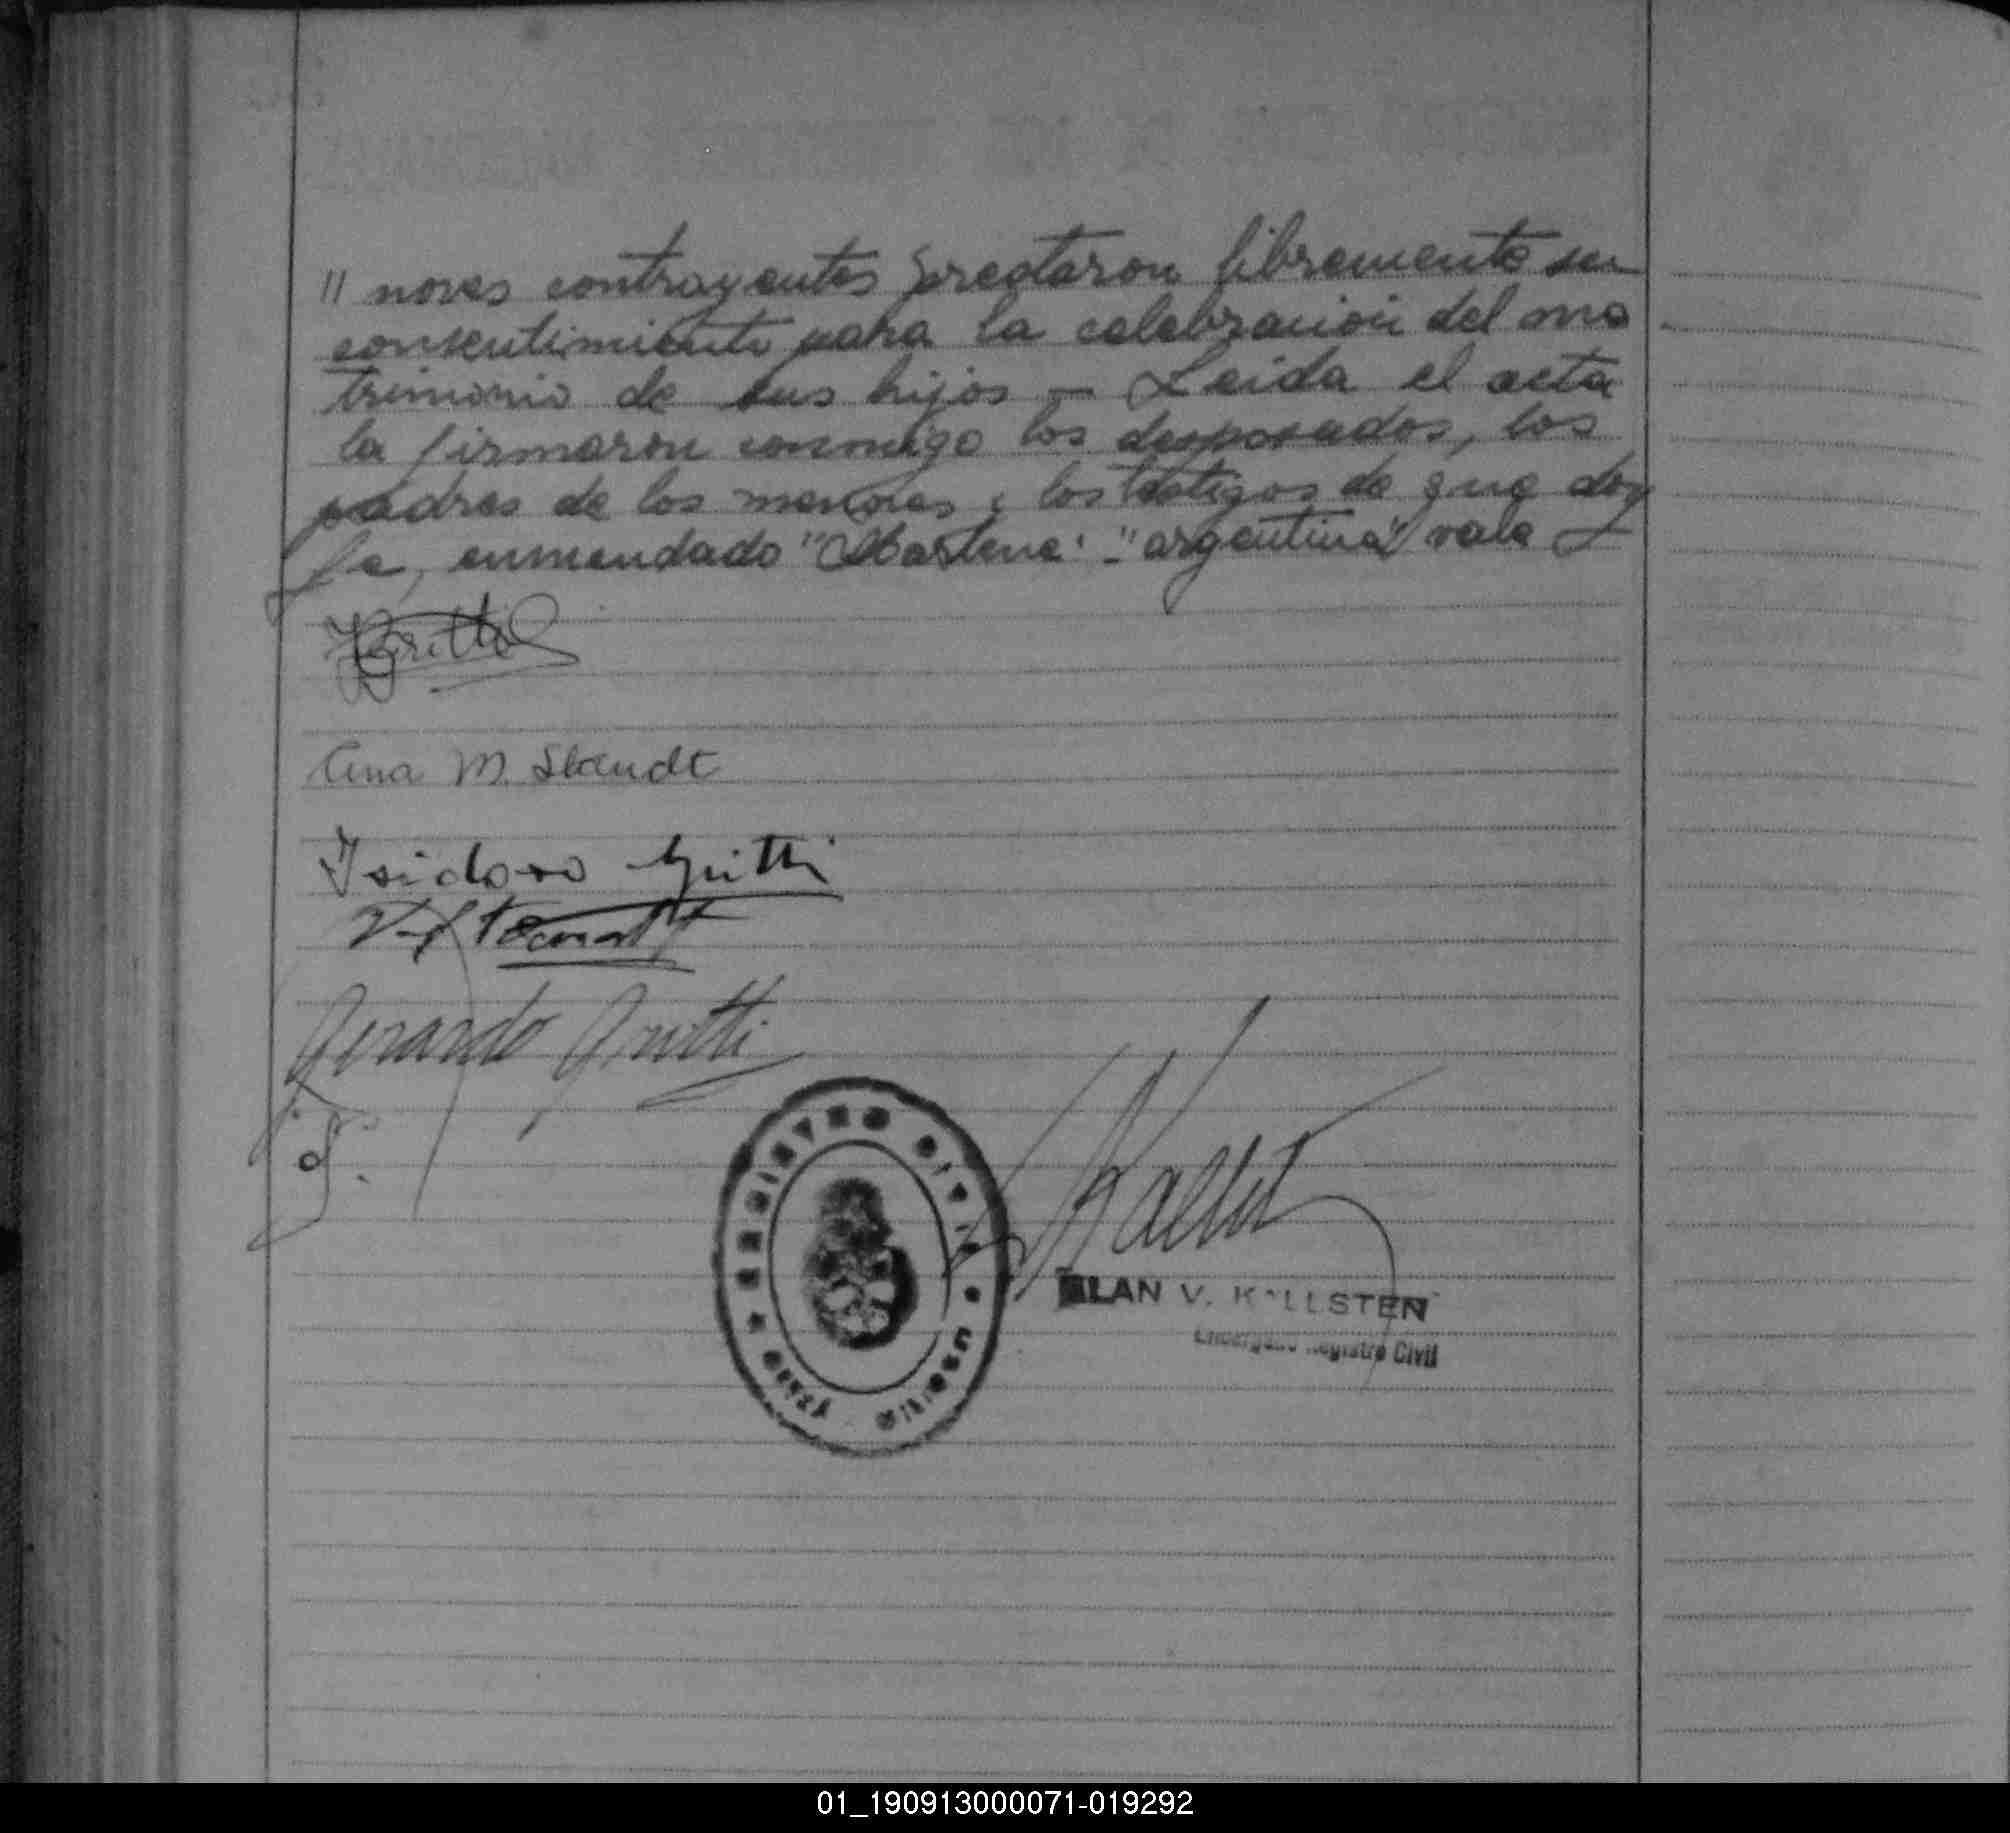 " nores contrayentes prestaron libremente su
consentimiento para la celebración del ma
trimonio de sus hijos - Leida el acta
la firmaron conmigo los desposados, los
padres de los menores y los testigos de que doy
fe, enmendado "Marlene" - "argentina" vale
Ana M. Staudt
Isidoro Gritti
Gerardo Gritti
REGISTRO CIVIL
ALAN V. KALLSTEN
Encargado Registro Civil
01_190913000071-019292